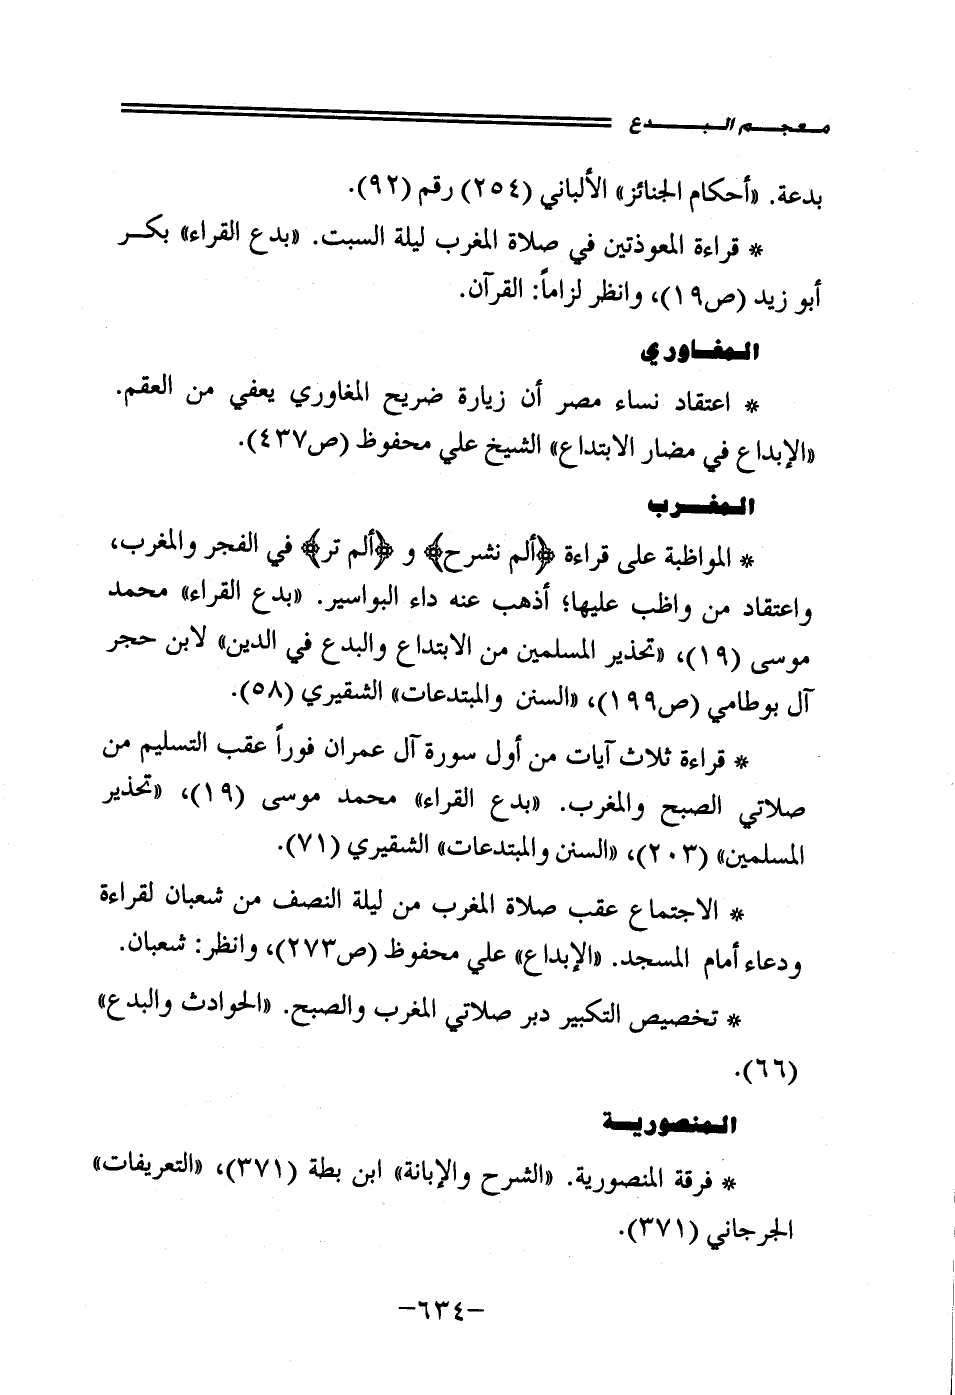 معجم البدع
بدعة. «أحكام الجنائز» الألباني (٢٥٤) رقم (٩٢).
* قراءة المعوذتين في صلاة المغرب ليلة السبت. «بدع القراء» بكر
أبو زيد (ص١٩)، وانظر لزاماً: القرآن.
المغاوري
* اعتقاد نساء مصر أن زيارة ضريح المغاوري يعفي من العقم.
«الإبداع في مضار الابتداع» الشيخ علي محفوظ (ص٤٣٧).
المغرب
* المواظبة على قراءة ﴿ألم نشرح﴾ و ﴿ألم تر﴾ في الفجر والمغرب،
واعتقاد من واظب عليها؛ أذهب عنه داء البواسير. «بدع القراء» محمد
موسى (١٩)، «تحذير المسلمين من الابتداع والبدع في الدين» لابن حجر
آل بوطامي (ص١٩٩)، «السنن والمبتدعات» الشقيري (٥٨).
* قراءة ثلاث آيات من أول سورة آل عمران فوراً عقب التسليم من
صلاتي الصبح والمغرب. «بدع القراء» محمد موسى (١٩)، «تحذير
المسلمين» (٢٠٣)، «السنن والمبتدعات» الشقيري (٧١).
* الاجتماع عقب صلاة المغرب من ليلة النصف من شعبان لقراءة
ودعاء أمام المسجد. «الإبداع» علي محفوظ (ص٢٧٣)، وانظر: شعبان.
* تخصيص التكبير دبر صلاتي المغرب والصبح. «الحوادث والبدع»
(٦٦).
المنصورية
* فرقة المنصورية. «الشرح والإبانة» ابن بطة (٣٧١)، «التعريفات»
الجرجاني (٣٧١).
-٦٣٤-